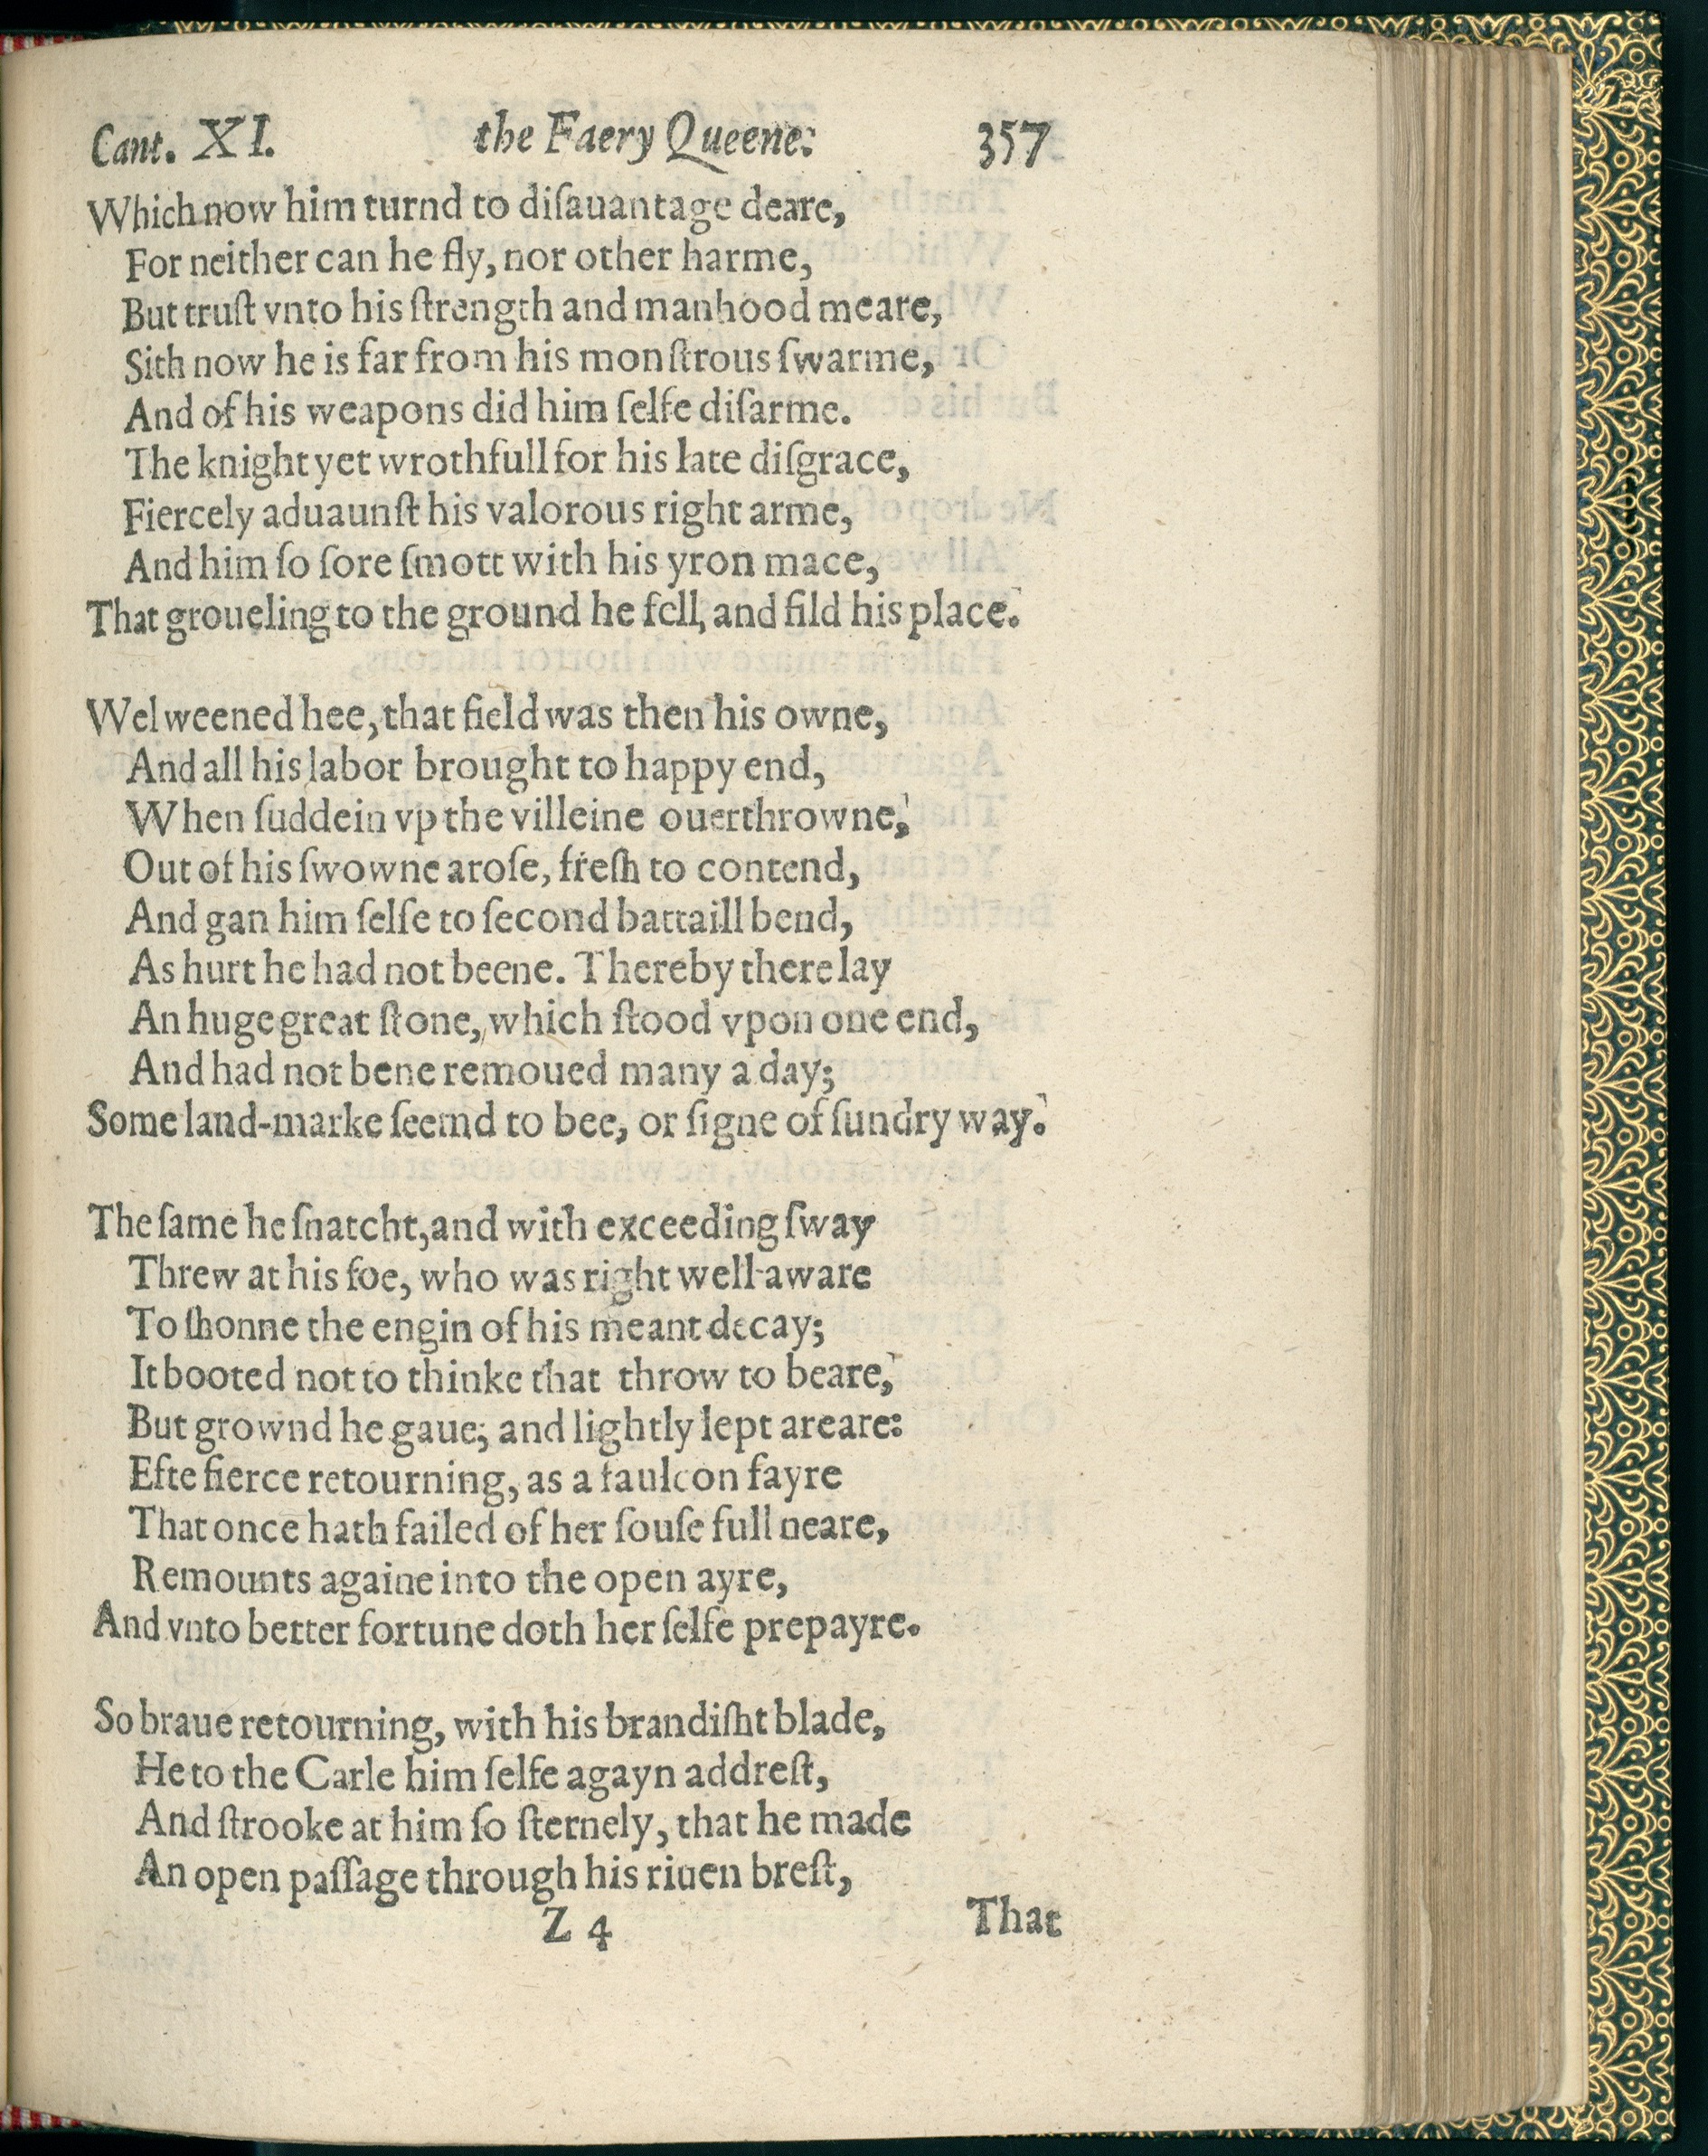 Cant. XI. the Faery Queene: 357
Which now him turnd to diſauantage deare,
For neither can he fly, nor other harme,
But truſt vnto his ſtrength and manhood meare,
Sith now he is far from his monſtrous ſwarme,
And of his weapons did him ſelfe diſarme.
The knight yet wrothfull for his late diſgrace,
Fiercely aduaunſt his valorous right arme,
And him ſo ſore ſmott with his yron mace,
That groueling to the ground he fell, and fild his place.
Wel weened hee, that field was then his owne,
And all his labor brought to happy end,
When ſuddein vp the villeine ouerthrowne,
Out of his ſwowne aroſe, freſh to contend,
And gan him ſelfe to ſecond battaill bend,
As hurt he had not beene. Thereby there lay
An huge great ſtone, which ſtood vpon one end,
And had not bene remoued many a day;
Some land-marke ſeemd to bee, or ſigne of ſundry way.
The ſame he ſnatcht, and with exceeding ſway
Threw at his foe, who was right well aware
To ſhonne the engin of his meant decay;
It booted not to thinke that throw to beare,
But grownd he gaue, and lightly lept areare:
Efte fierce retourning, as a faulcon fayre
That once hath failed of her ſouſe full neare,
Remounts againe into the open ayre,
And vnto better fortune doth her ſelfe prepayre.
So braue retourning, with his brandiſht blade,
He to the Carle him ſelfe agayn addreſt,
And ſtrooke at him ſo ſternely, that he made
An open paſſage through his riuen breſt,
Z 4 That